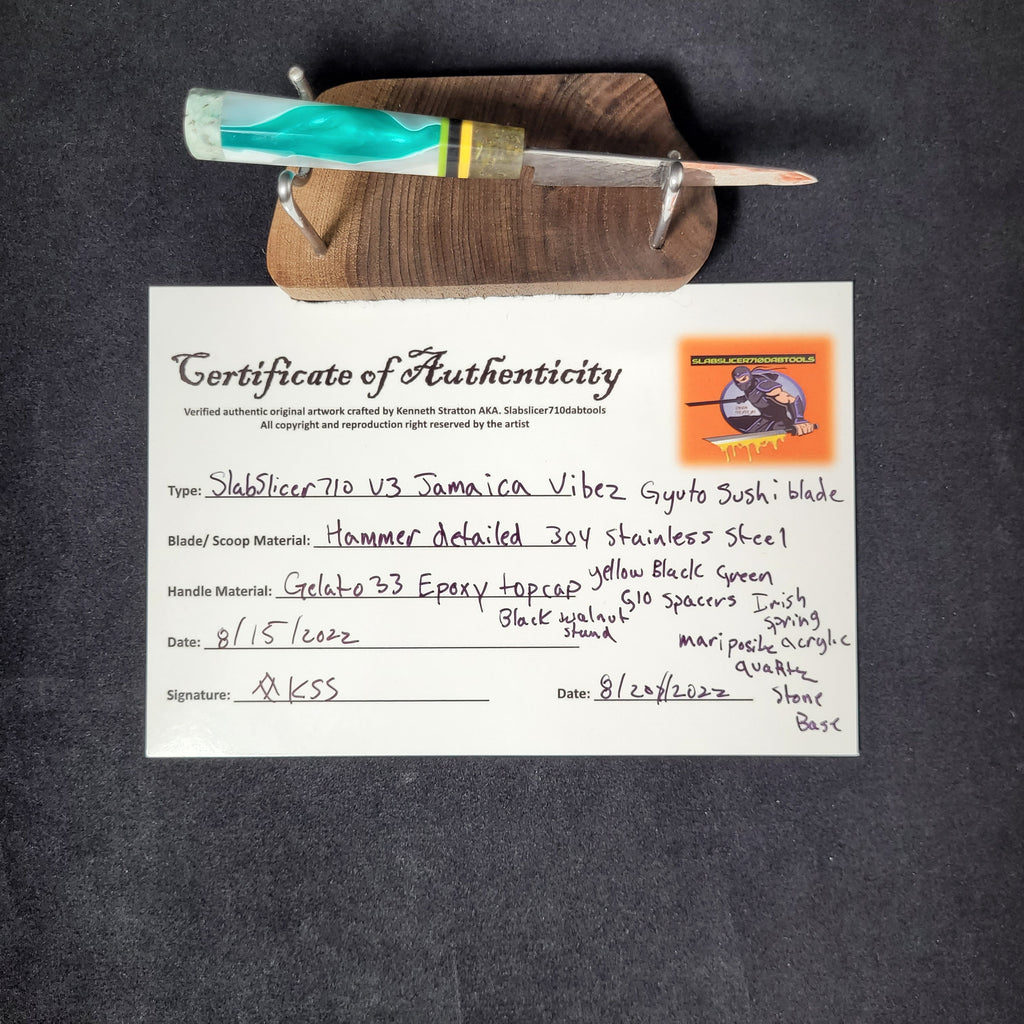 Certificate of Authenticity
SLABSLICER710DABTOOLS
Verified authentic original artwork crafted by Kenneth Stratton AKA. Slabslicer710dabtools
All copyright and reproduction right reserved by the artist
Type: SlabSlicer710 V3 Jamaica Vibez Gyuto Sushi blade
Blade/ Scoop Material: Hammer detailed 304 Stainless Steel
Handle Material: Gelato 33 Epoxy topcap yellow Black Green
G10 Spacers Irish
Spring
Black walnut
Stand
mariposite acrylic
quartz
Stone
Base
Date: 8/15/2022
Signature: KSS
Date: 8/20/2022